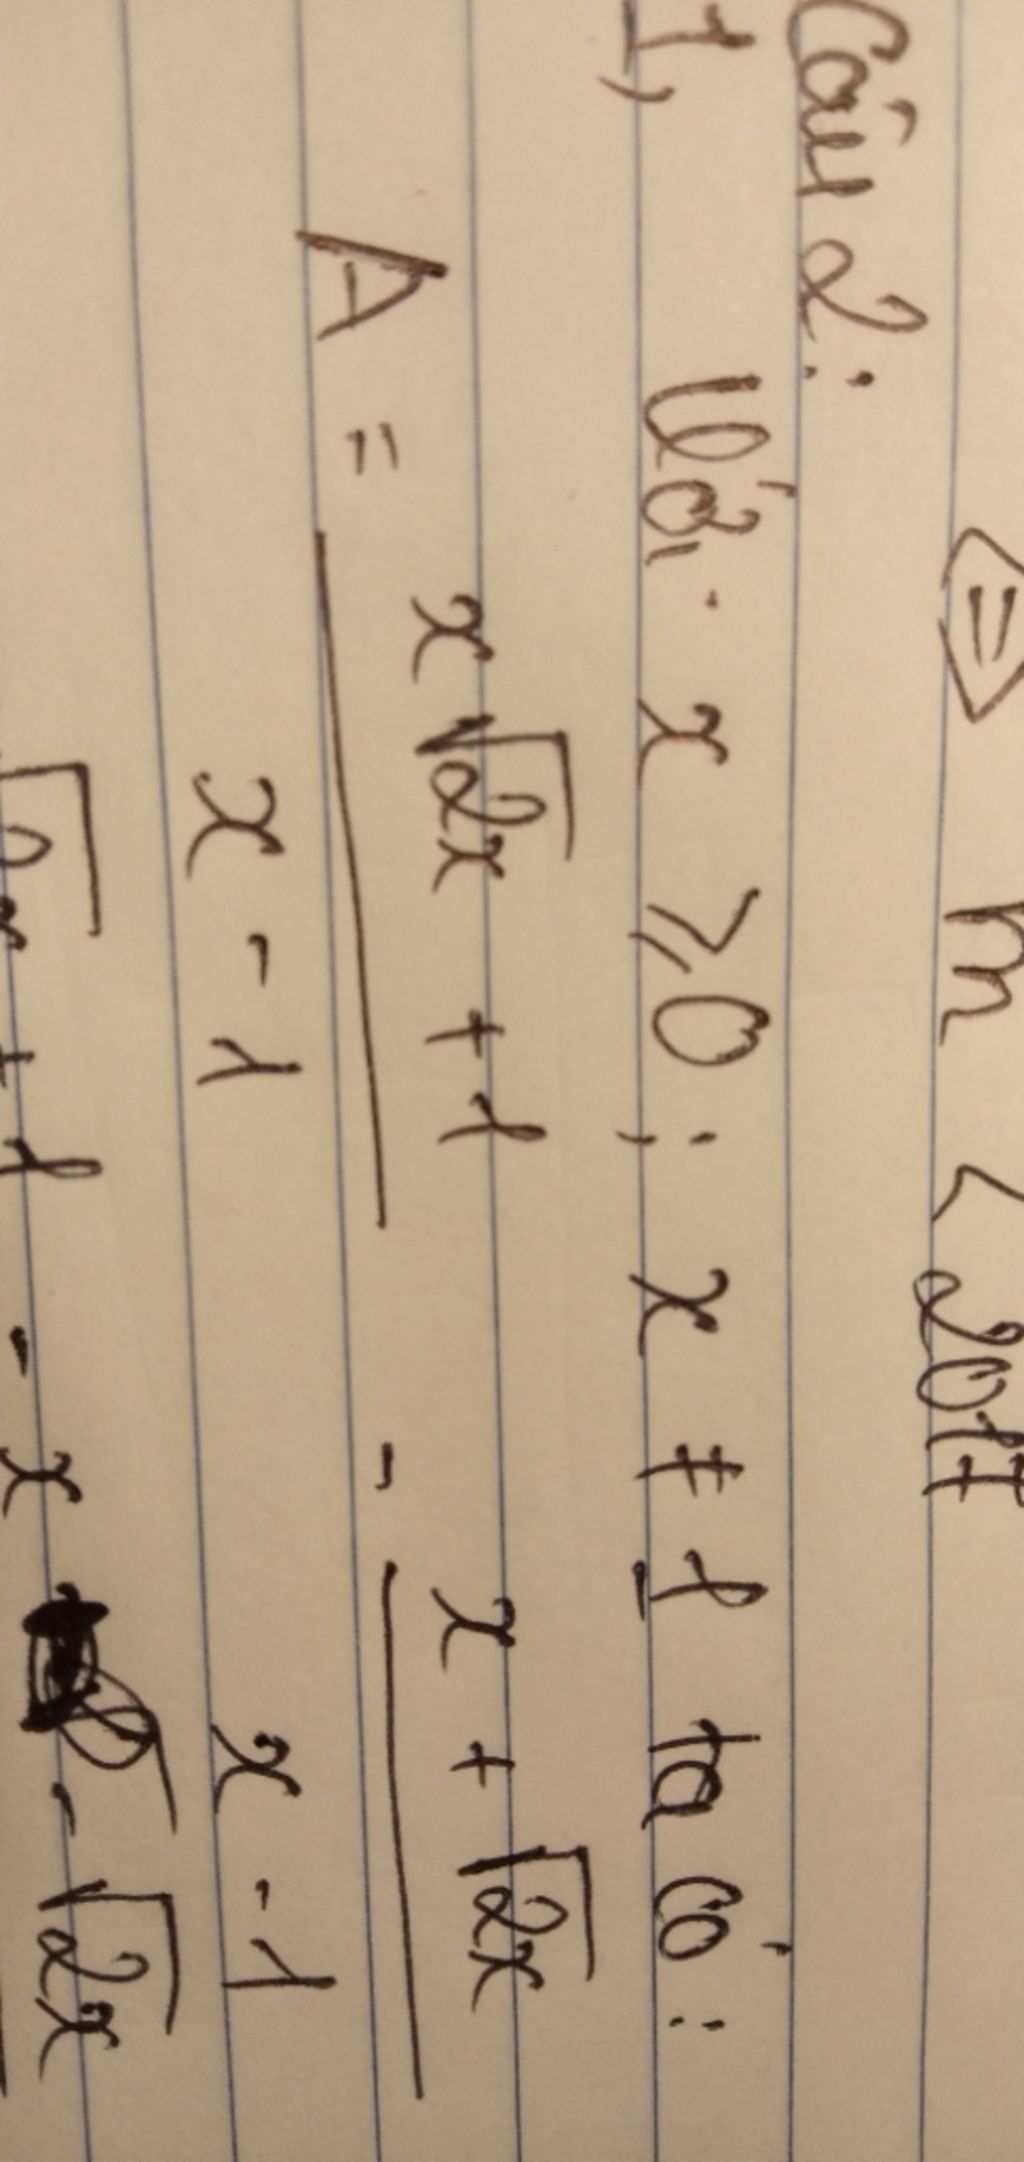 ⇒ m < 2017
Câu 2:
1, Với x ⩾ 0 ; x ≠ 1 ta có:
A = x√2x + 1 / x - 1 - x + √2x / x - 1
√2x + 1 - x - √2x